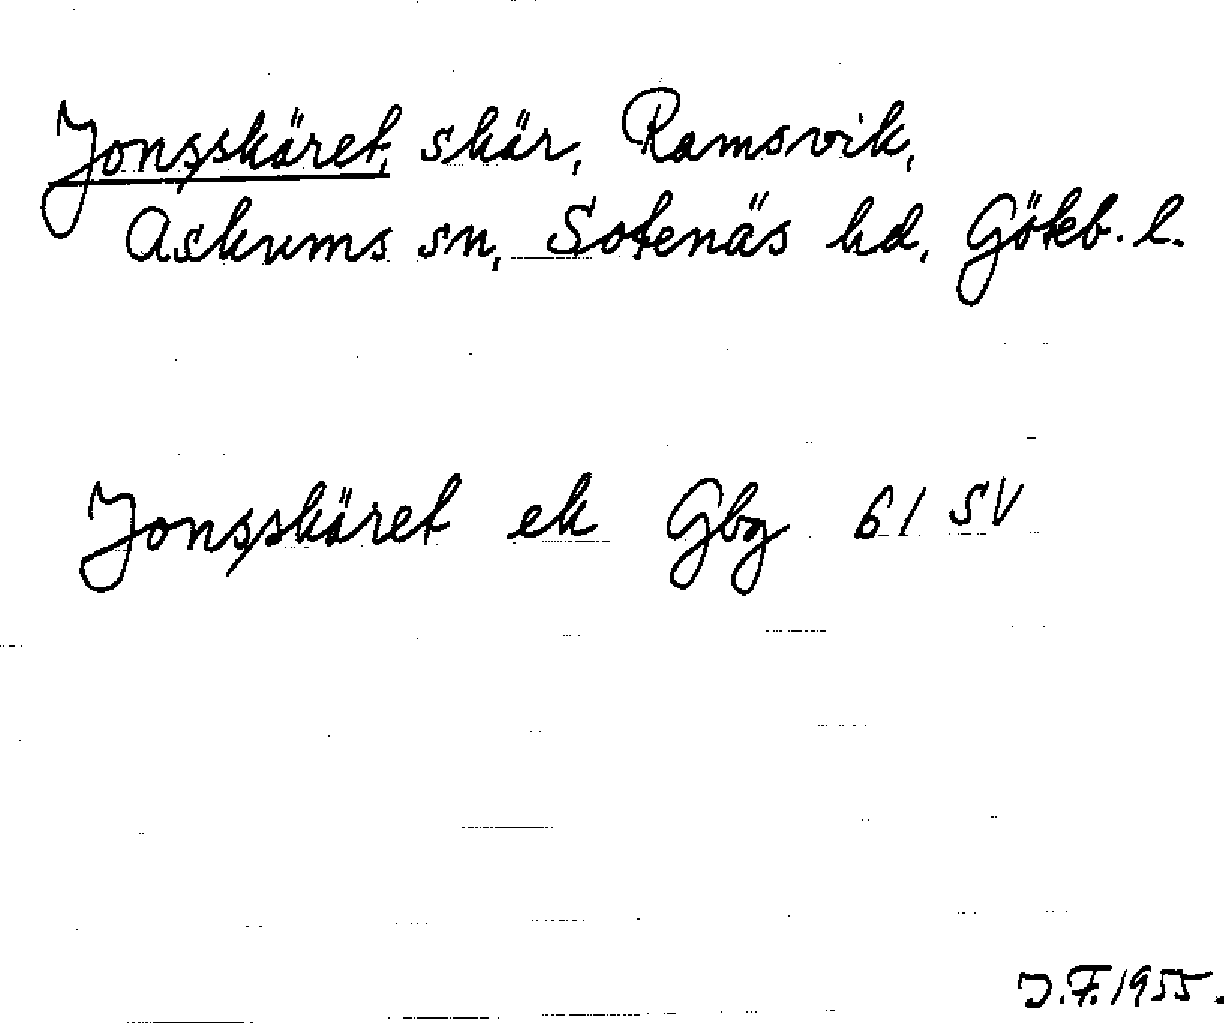 Jonsskäret, skär, Ramsvik,
Askums sn, Sotenäs hd, Göteb. l.
Jonsskäret ek Gbg 61 SV
J.F. 1955.